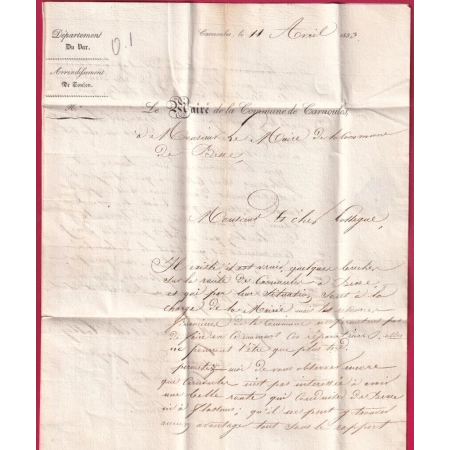 Département
Du Var.
0.1
Arrondissement
De Toulon.
N.º
Carnoules, le 11 Avril 1853
Le Maire de la Commune de Carnoules
à Monsieur Le Maire de la commune
de Besse
Monsieur & cher Collègue,
Il existe il est vrai, quelque
sur la route de Carnoules à Besse,
et qui par leur situation, sont à la
charge de la Mairie mais les
de la commune
de faire en ce moment ces réparations, elles
ne pourront l'être que plus tard.
permettez moi de vous observer encore
que Carnoules n'est pas intéressée à avoir
une belle route qui conduise de Besse
à Flassans; qu'il ne peut y trouver
aucun avantage tant sous le rapport